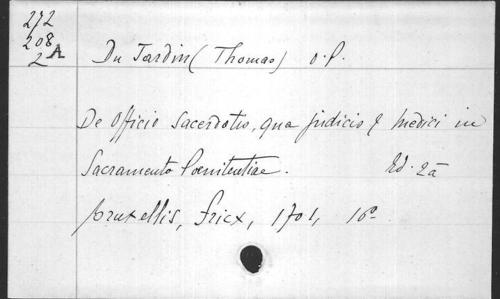 272
208
2 A
Du Jardin (Thomas) O.P.
De Officio Sacerdotis, qua judicis & medici in
Sacramento Poenitentiae. Ed. 2a
Bruxellis, Fricx, 1701, 16o